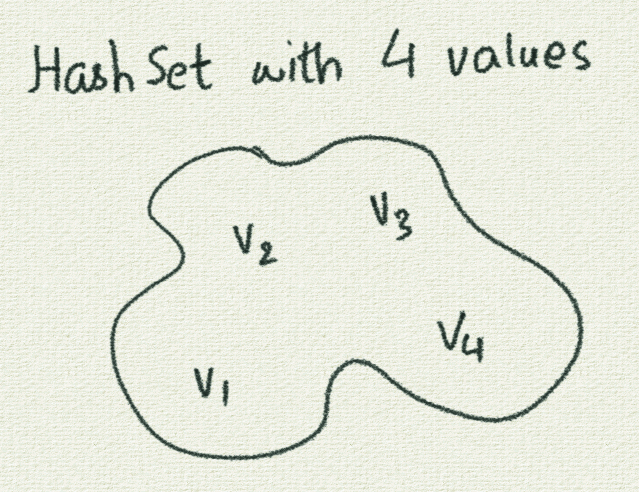 HashSet with 4 values
V3
V2
V4
V1